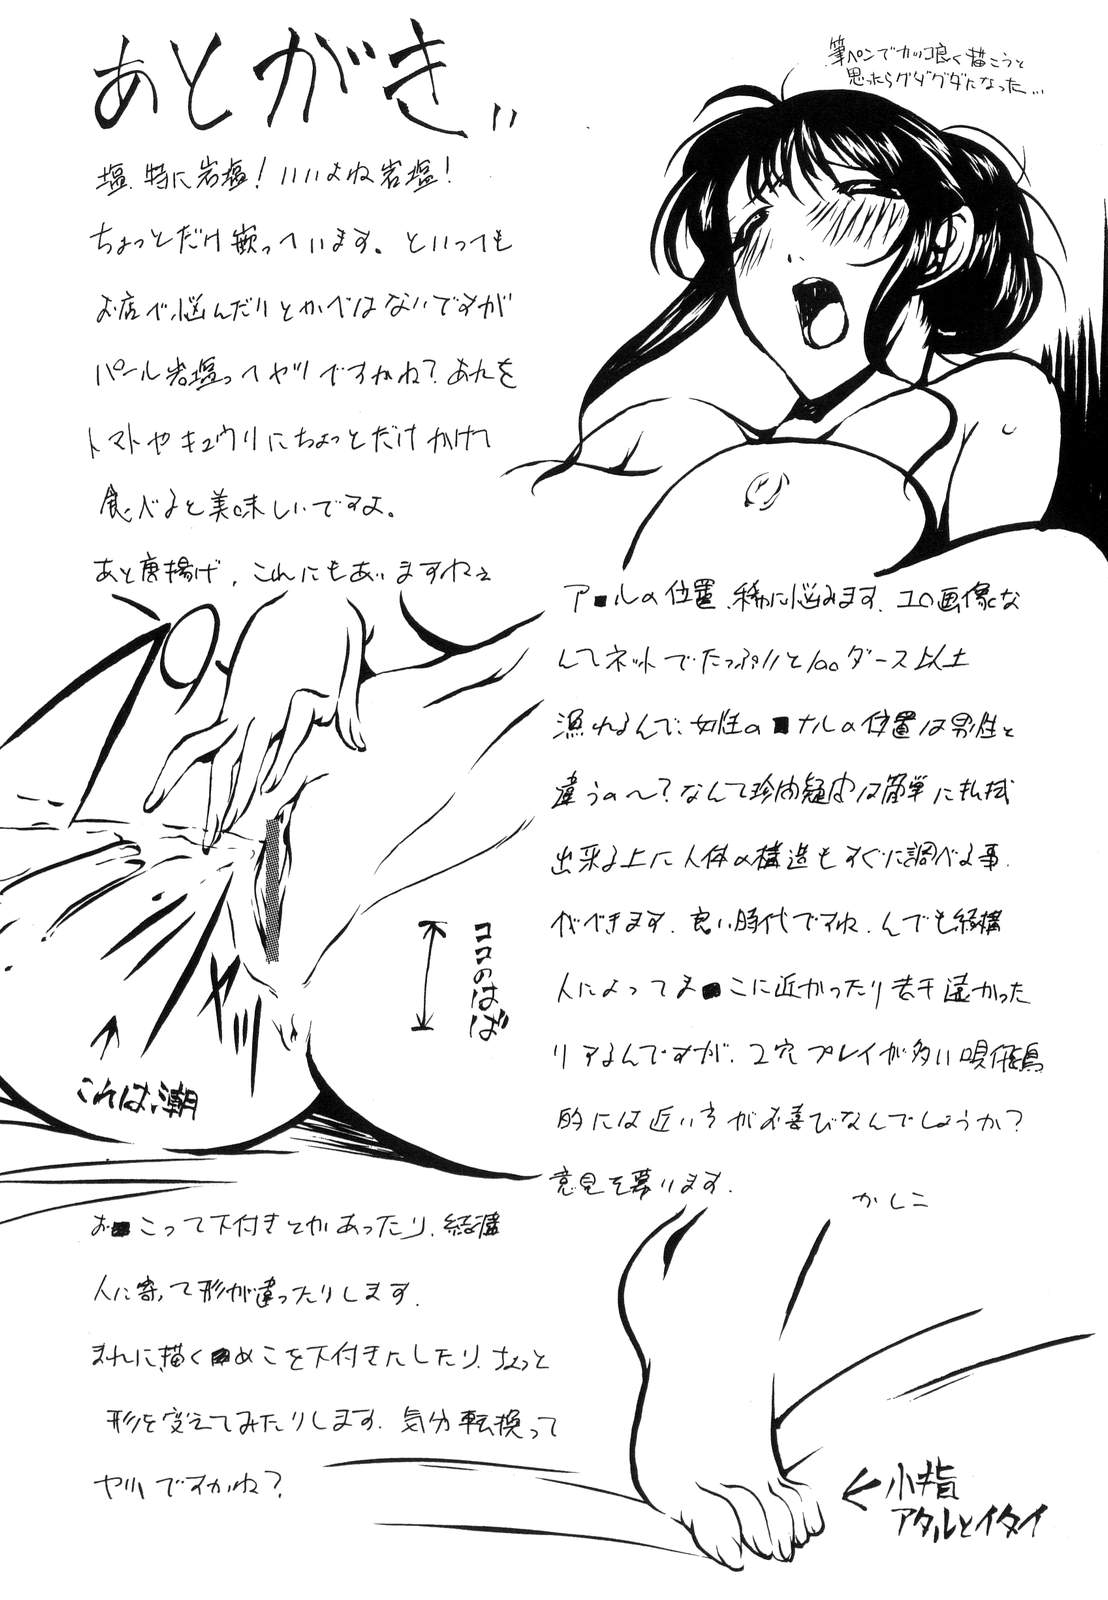 あとがきぃ
筆ペンでカッコ良く描こうと
思ったらグダグダになった…
塩、特に岩塩！いいよね岩塩！
ちょっとだけ嵌っています。といっても
お店で悩んだりとかではないですが
パール岩塩ってヤツですかね？あれを
トマトやキュウリにちょっとだけかけて
食べると美味しいですよ。
あと唐揚げ、これにもあいますねぇ
ア■ルの位置、稀に悩みます、エロ画像な
んてネットでたっぷりと100ダース以上
漁れるんで、女性の■ナルの位置は男性と
違うの〜？なんて珍内疑問は簡単に払拭
出来る上に人体の構造もすぐに調べる事
ができます、良い時代ですね、んでも結構
人によってま■こに近かったり若干遠かった
りするんですが、2穴プレイが多い唄飛鳥
的には近い方がお喜びなんでしょうか？
意見を募ります。
かしこ
ココのはば
ヤッ
これは、潮
お■こって下付きとかあったり、結構
人に寄って形が違ったりします。
まれに描く■めこを下付きにしたり、ちょっと
形を変えてみたりします、気分転換って
ヤツですかね？
←小指
アタルとイタイ